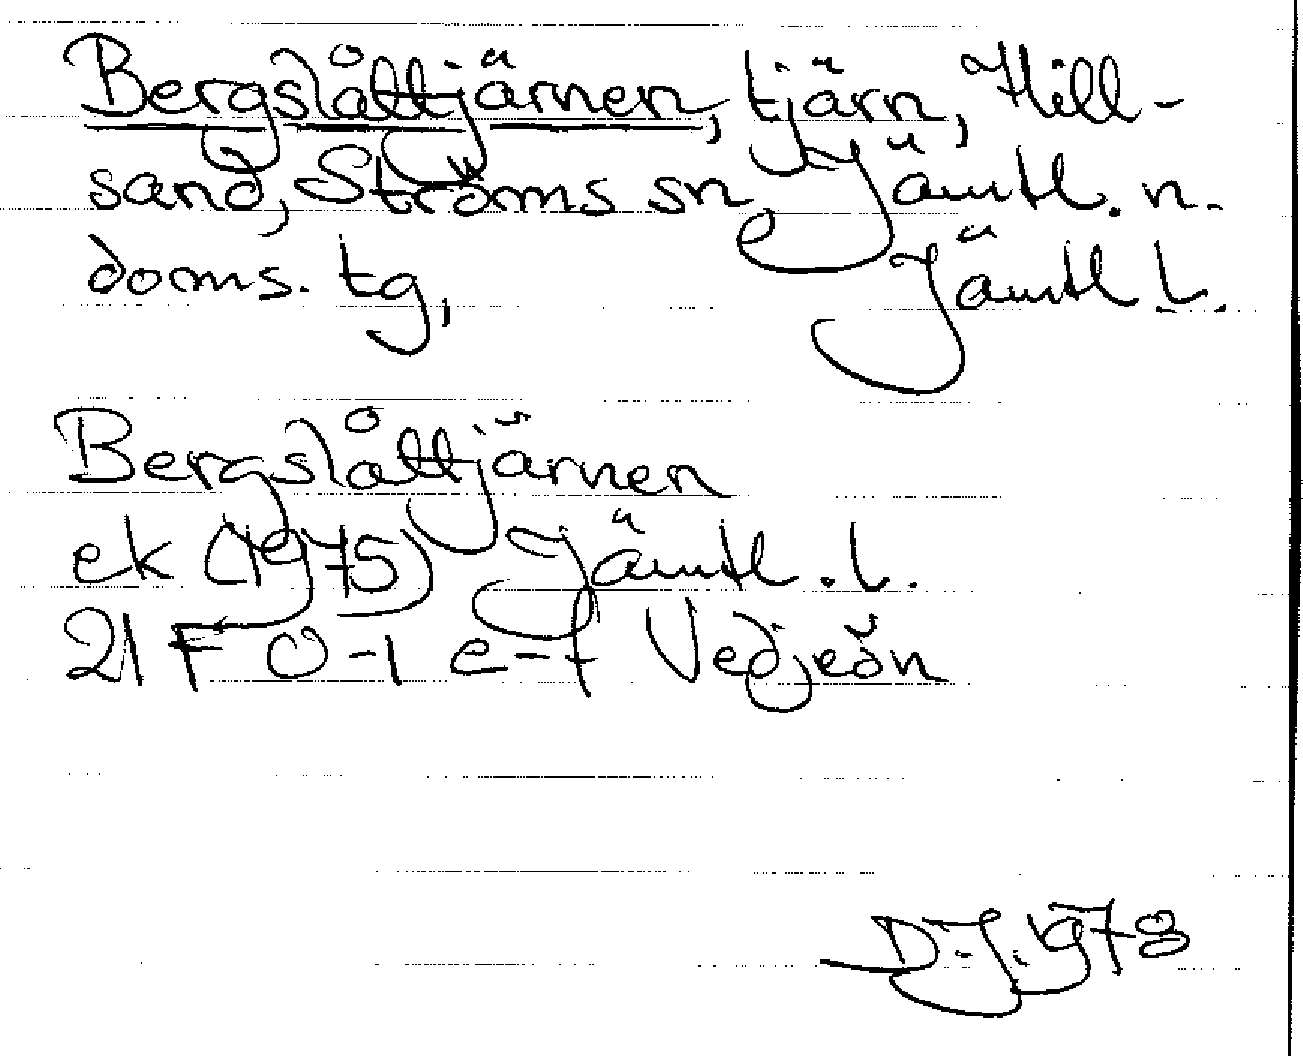 Bergslåttjärnen, tjärn, Hill-
sand, Ströms sn, Jämtl. n.
doms. tg, Jämtl L.
Bergslåttjärnen
ek (1975) Jämtl. L.
21 F 0-1 e-f Vedjeön
D.J. 1978